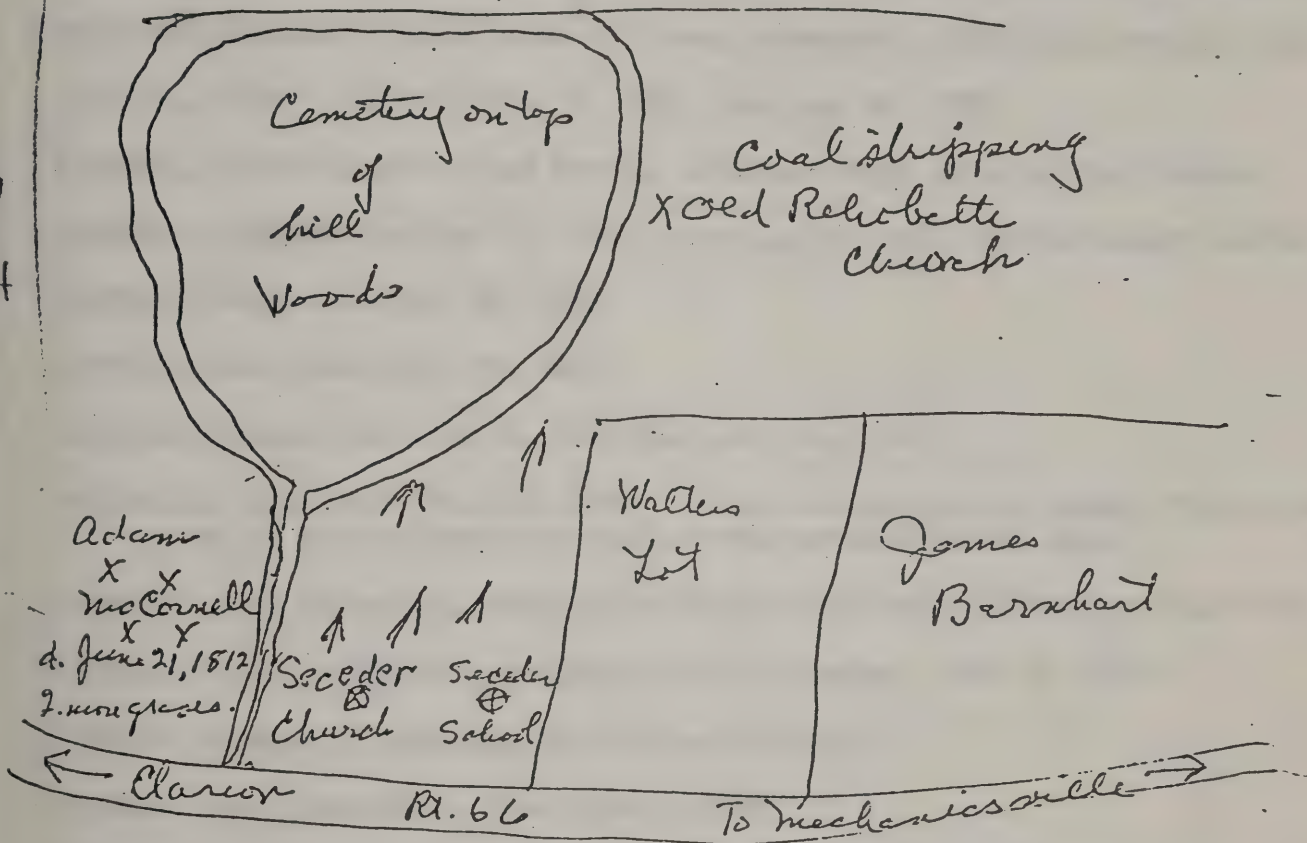 Cemetery on top
of
hill
Woods
Coal stripping
X Old Rehobette
Church
Adam
X X
McConnell
X X
d. June 21, 1812
2. more graves.
Seceder
Church
Seceder
School
Walters
Lot
James
Barnhart
← Clarion
Rt. 66
To Mechanicsville →